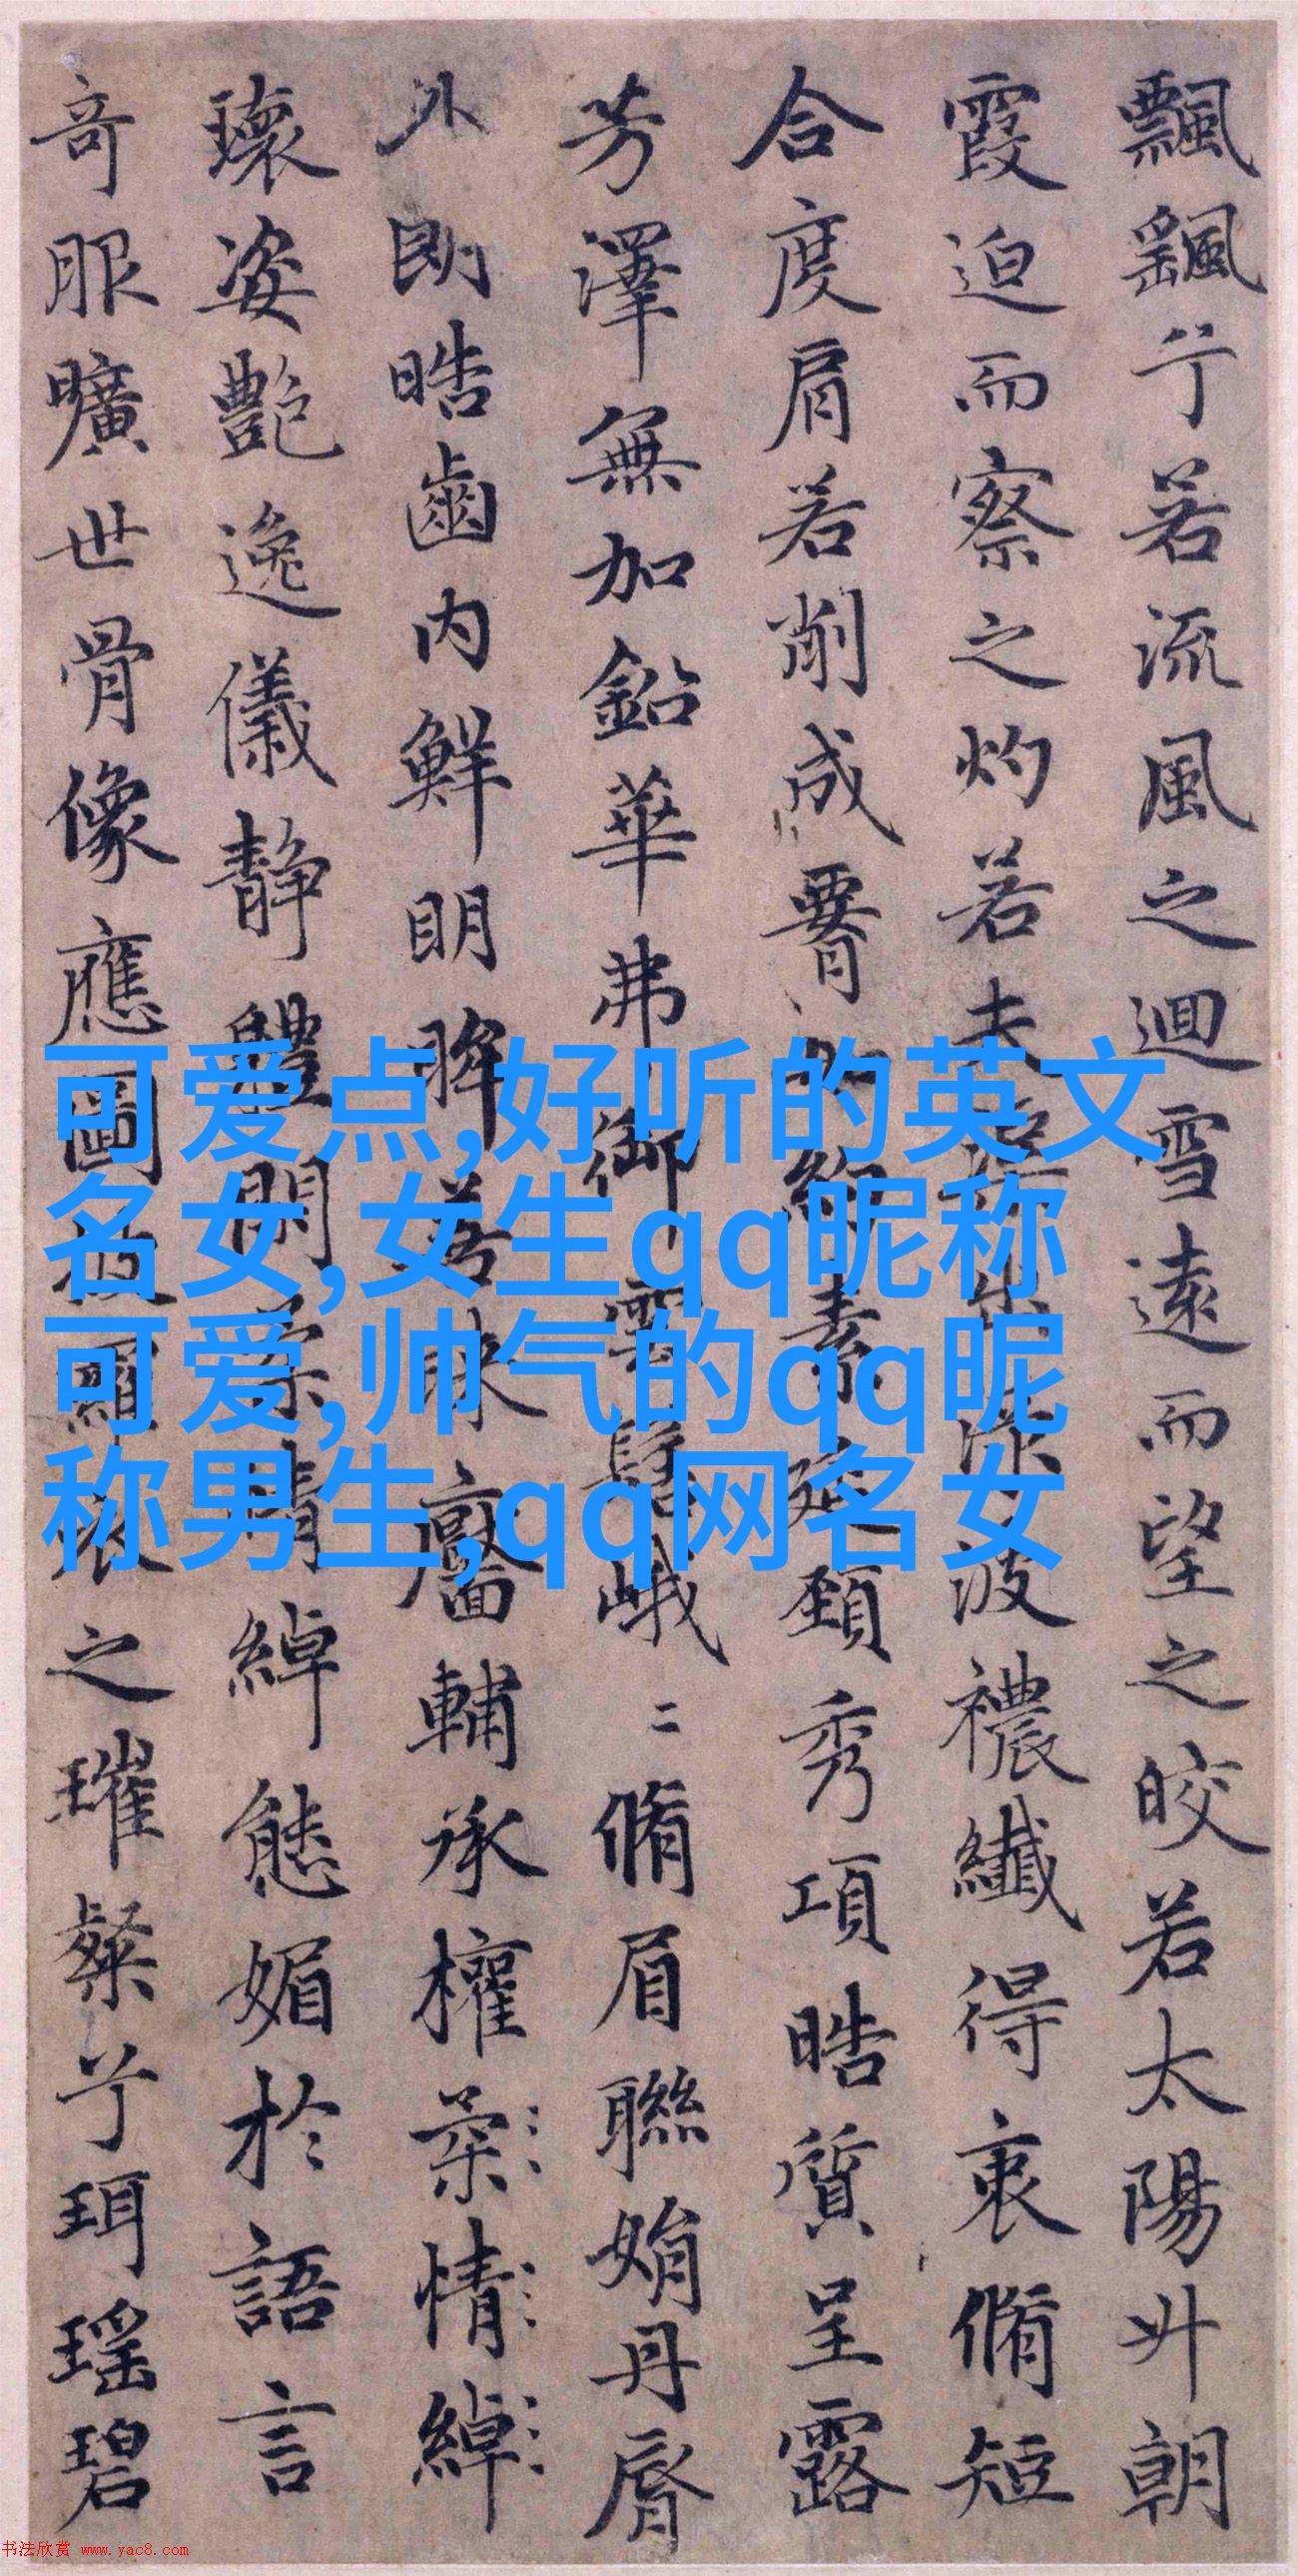 飄颻兮若流風之迴雪遠而望之皎若太陽升朝
霞迫而察之灼若夫出淥波襛纖得衷脩短
合度肩若削成腰如約素延頸秀項皓質呈露
芳澤無加鉛華弗御雲髻峨二脩眉聯娟丹脣
外朗皓齒内鮮明眸善睞靨輔承權柔情綽
瓌姿艷逸儀静體閑柔情綽態媚於語言
奇服曠世骨像應圖披羅衣之璀粲兮珥瑶碧
可爱点,好听的英文
名女,女生qq昵称
可爱,帅气的qq昵
称男生,qq网名女
书法欣赏 www.yac8.com